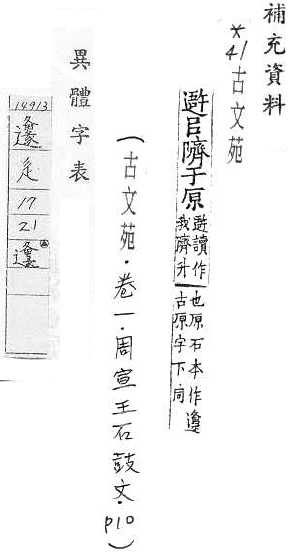 補充資料
*41古文苑
避㠯隮于原
避讀作
我隮升
也原石本作邍
古原字下同
(古文苑·卷一·周宣王石鼓文·p10)
異體字表
14913
邍
辵
17
21
邍